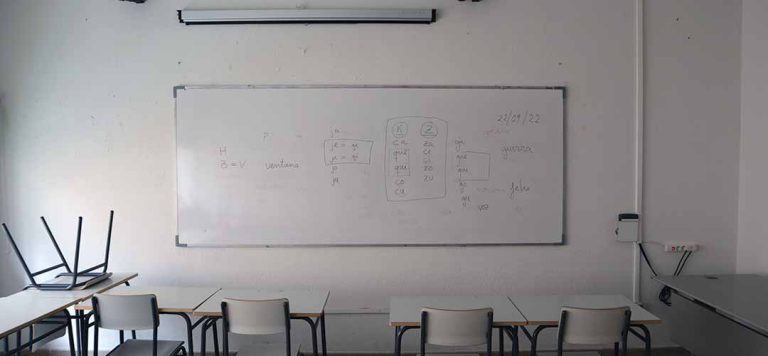 22/09/22
H
B = V ventana
ja
je = ge
ji = gi
jo
ju
K
ca
que
qui
co
cu
Z
za
ce
ci
zo
zu
ga
gue
gui
go
gu
guerra
voz